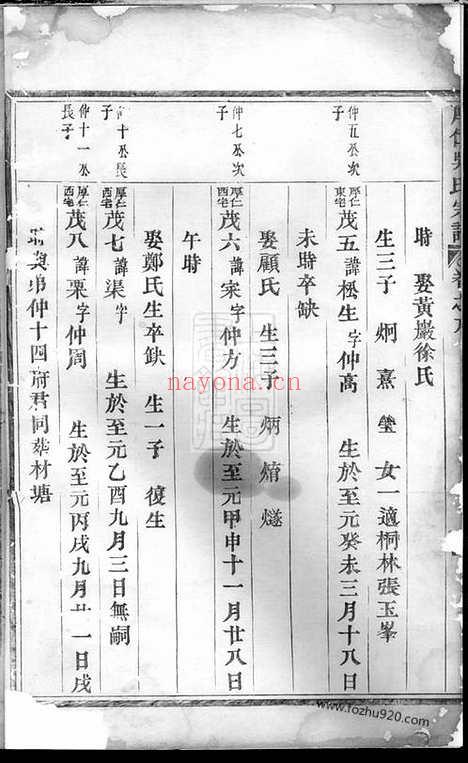 厚仁吳氏宗譜 卷之
時 娶黃巖徐氏
生三子 炯 熹 瑩 女一適桐林張玉峯
仲五公次子
厚仁東宅 茂五諱松生字仲高 生於至元癸未三月十八日
未時卒缺
娶顧氏 生三子 炳 焴 燧
仲七公次子
厚仁西宅 茂六諱宋字仲方 生於至元甲申十一月廿八日
午時
娶鄭氏生卒缺 生一子 復生
仲十公長子
厚仁西宅 茂七諱渠字 生於至元乙酉九月三日無嗣
仲十一公長子
厚仁西宅 茂八諱栗字仲周 生於至元丙戌九月廿一日戌
時與弟仲十四府君同葬材塘
nayona.cn
www.fozhu920.com